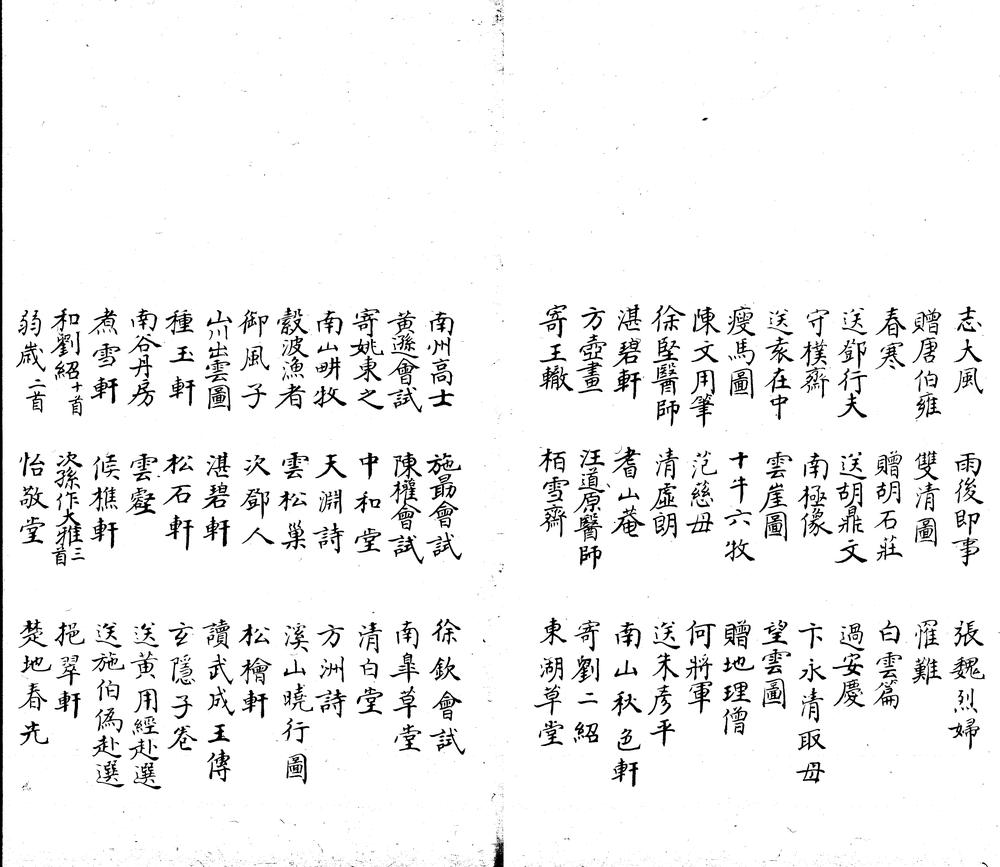 志大風 雨後即事 張魏烈婦
贈唐伯雍 雙清圖 罹難
春寒 贈胡石莊 白雲篇
送鄧行夫 送胡鼎文 過安慶
守樸齋 南極像 卞永清取母
送袁在中 雲崖圖 望雲圖
瘦馬圖 十牛六牧 贈地理僧
陳文用筆 范慈母 何將軍
徐堅醫師 清虛朗 送朱彥平
湛碧軒 耆山菴 南山秋色軒
方壺畫 汪道原醫師 寄劉二紹
寄王轍 栢雪齋 東湖草堂
南州高士 施勗會試 徐欽會試
黃遜會試 陳權會試 南皐草堂
寄姚東之 中和堂 清白堂
南山畊牧 天淵詩 方洲詩
縠波漁者 雲松巢 溪山曉行圖
御風子 次鄧人 松檜軒
山川出雲圖 湛碧軒 讀武成王傳
種玉軒 松石軒 玄隱子卷
南谷丹房 雲壑 送黃用經赴選
煮雪軒 侯樵軒 送施伯僞赴選
和劉紹十首 次孫作大雅三首 挹翠軒
弱歲二首 怡敬堂 楚地春先